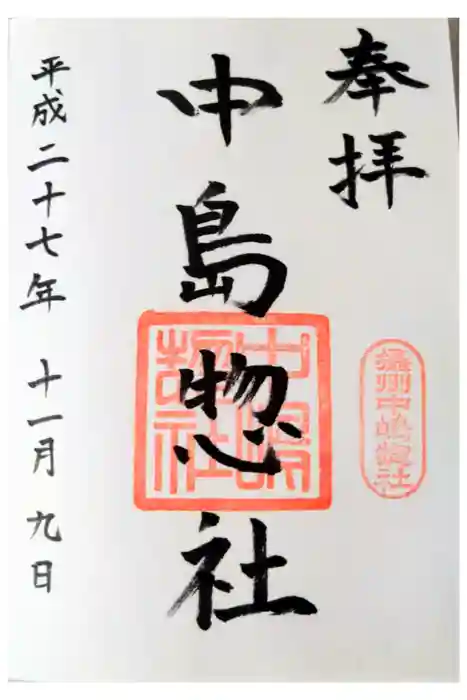 奉拝
中島惣社
平成二十七年 十一月 九日
摂州中嶋惣社
中嶋惣社